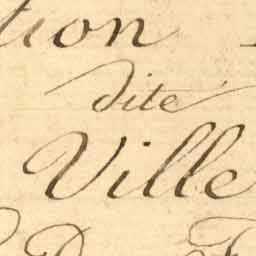 tion
dité
Ville